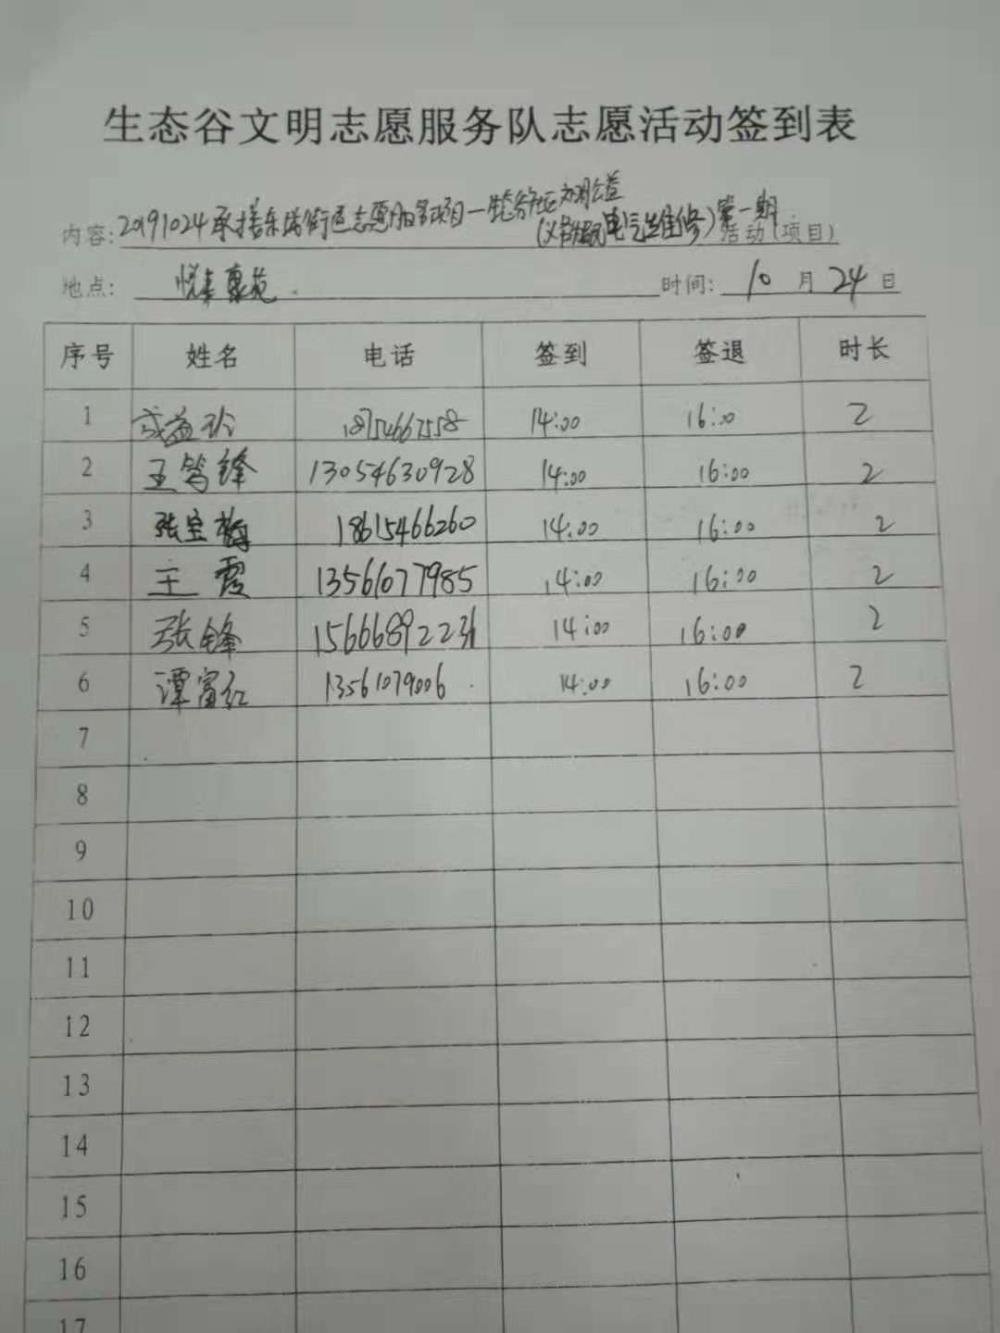 生态谷文明志愿服务队志愿活动签到表
内容: 20191024承接东城街道志愿服务项目—生态谷社区文明公益
(义务 电气维修) 第一期 活动(项目)
地点: 悦 惠苑 时间: 10 月 24 日
序号 姓名 电话 签到 签退 时长
1 益玲 18754667558 14:00 16:00 2
2 王笃锋 13054630928 14:00 16:00 2
3 张宝梅 18615466260 14:00 16:00 2
4 王霞 13561077985 14:00 16:00 2
5 张锋 15666892231 14:00 16:00 2
6 谭富红 13561079006 14:00 16:00 2
7
8
9
10
11
12
13
14
15
16
17